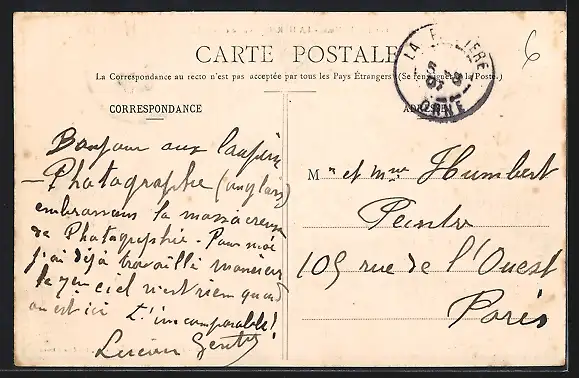 CARTE POSTALE
La Correspondance au recto n'est pas acceptée par tous les Pays Étrangers (Se renseigner à la Poste.)
6
ORNE
CORRESPONDANCE
ADRESSE
Bonjour aux
Photographie (anglais)
embrassons la massacreuse
de Photographie. Pour moi
j'ai déjà travaillé monsieur
le ciel n'est rien quand
on est ici L'incomparable!
Lucien
Mr et mme Humbert
Peintre
105 rue de l'Ouest
Paris